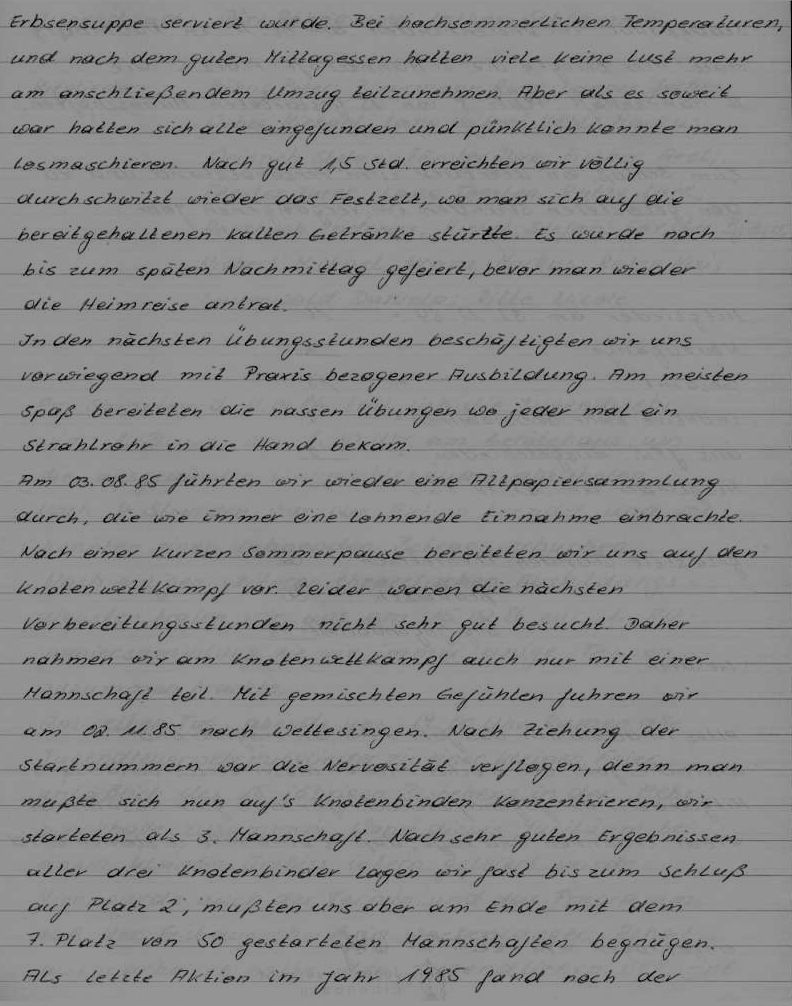 Erbsensuppe serviert wurde. Bei hochsommerlichen Temperaturen,
und nach dem guten Mittagessen hatten viele keine Lust mehr
am anschließendem Umzug teilzunehmen. Aber als es soweit
war hatten sich alle eingefunden und pünktlich konnte man
losmaschieren. Nach gut 1,5 Std. erreichten wir völlig
durchschwitzt wieder das Festzelt, wo man sich auf die
bereitgehaltenen kalten Getränke stürtte. Es wurde noch
bis zum späten Nachmittag gefeiert, bevor man wieder
die Heimreise antrat.
In den nächsten Übungsstunden beschäftigten wir uns
vorwiegend mit Praxis bezogener Ausbildung. Am meisten
Spaß bereiteten die nassen Übungen wo jeder mal ein
Strahlrohr in die Hand bekam.
Am 03.08.85 führten wir wieder eine Altpapiersammlung
durch, die wie immer eine lohnende Einnahme einbrachte.
Nach einer kurzen Sommerpause bereiteten wir uns auf den
Knotenwettkampf vor. Leider waren die nächsten
Vorbereitungsstunden nicht sehr gut besucht. Daher
nahmen wir am Knotenwettkampf auch nur mit einer
Mannschaft teil. Mit gemischten Gefühlen fuhren wir
am 02.11.85 nach Wettesingen. Nach Ziehung der
Startnummern war die Nervosität verflogen, denn man
mußte sich nun auf's Knotenbinden konzentrieren, wir
starteten als 3. Mannschaft. Nach sehr guten Ergebnissen
aller drei Knotenbinder lagen wir fast bis zum Schluß
auf Platz 2, mußten uns aber am Ende mit dem
7. Platz von 50 gestarteten Mannschaften begnügen.
Als letzte Aktion im Jahr 1985 fand noch der